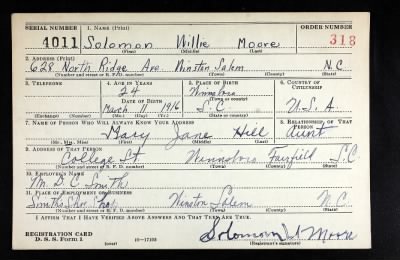 SERIAL NUMBER 1. NAME (Print) ORDER NUMBER
4011 Solomon Willie Moore 318
(First) (Middle) (Last)
2. ADDRESS (Print)
628 North Ridge Ave. Winston Salem N.C
(Number and street or R. F. D. number) (Town) (County) (State)
3. TELEPHONE 4. AGE IN YEARS 5. PLACE OF BIRTH 6. COUNTRY OF CITIZENSHIP
24 Winnsboro
DATE OF BIRTH (Town or county)
March 11 1916 S.C U.S.A
(Exchange) (Number) (Mo.) (Day) (Yr.) (State or country)
7. NAME OF PERSON WHO WILL ALWAYS KNOW YOUR ADDRESS 8. RELATIONSHIP OF THAT PERSON
Mary Jane Hill aunt
(Mr., Mrs., Miss) (First) (Middle) (Last)
9. ADDRESS OF THAT PERSON
College St Winnsboro Fairfield S.C
(Number and street or R. F. D. number) (Town) (County) (State)
10. EMPLOYER'S NAME
M. D. C Smith
11. PLACE OF EMPLOYMENT OR BUSINESS
Smiths Shoe Shop Winston Salem N.C
(Number and street or R. F. D. number) (Town) (County) (State)
I AFFIRM THAT I HAVE VERIFIED ABOVE ANSWERS AND THAT THEY ARE TRUE.
REGISTRATION CARD
D. S. S. Form 1 (over) 16—17105 Solomon W Moore
(Registrant's signature)